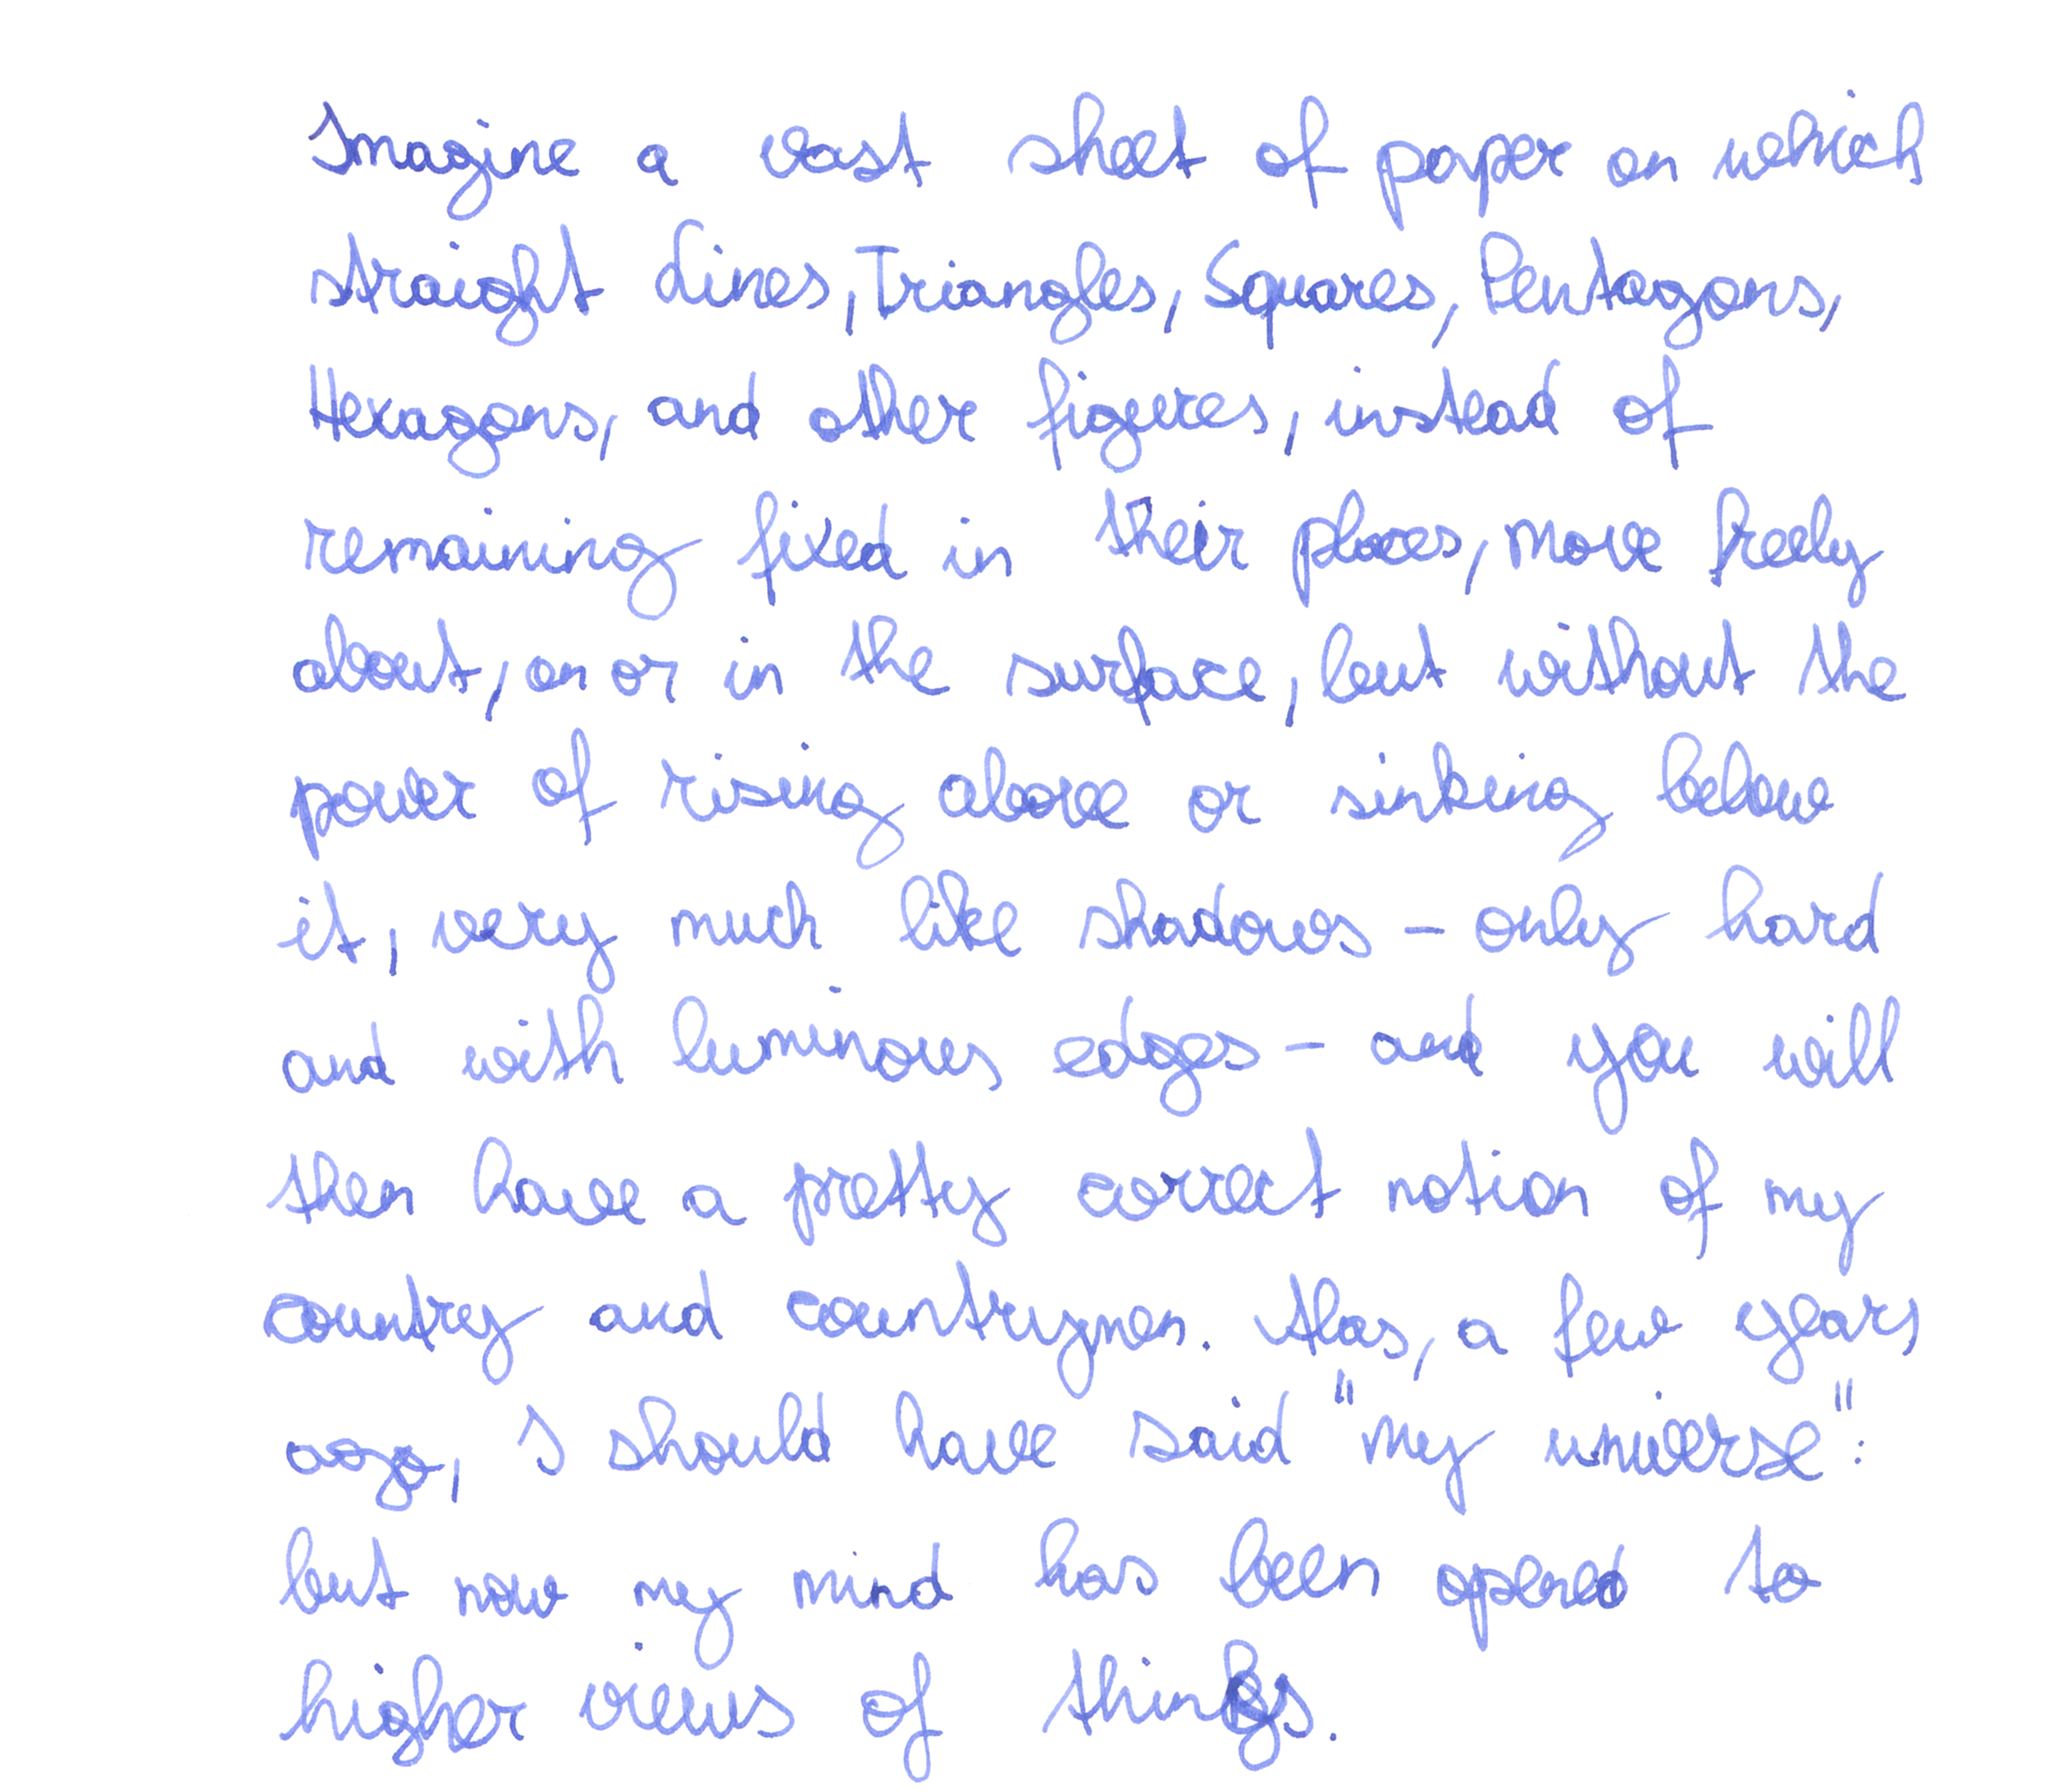 Imagine a vast sheet of paper on which
straight Lines, Triangles, Squares, Pentagons,
Hexagons, and other figures, instead of
remaining fixed in their places, move freely
about, on or in the surface, but without the
power of rising above or sinking below
it, very much like shadows - only hard
and with luminous edges - and you will
then have a pretty correct notion of my
country and countrymen. Alas, a few years
ago, I should have said "my universe":
but now my mind has been opened to
higher views of things.